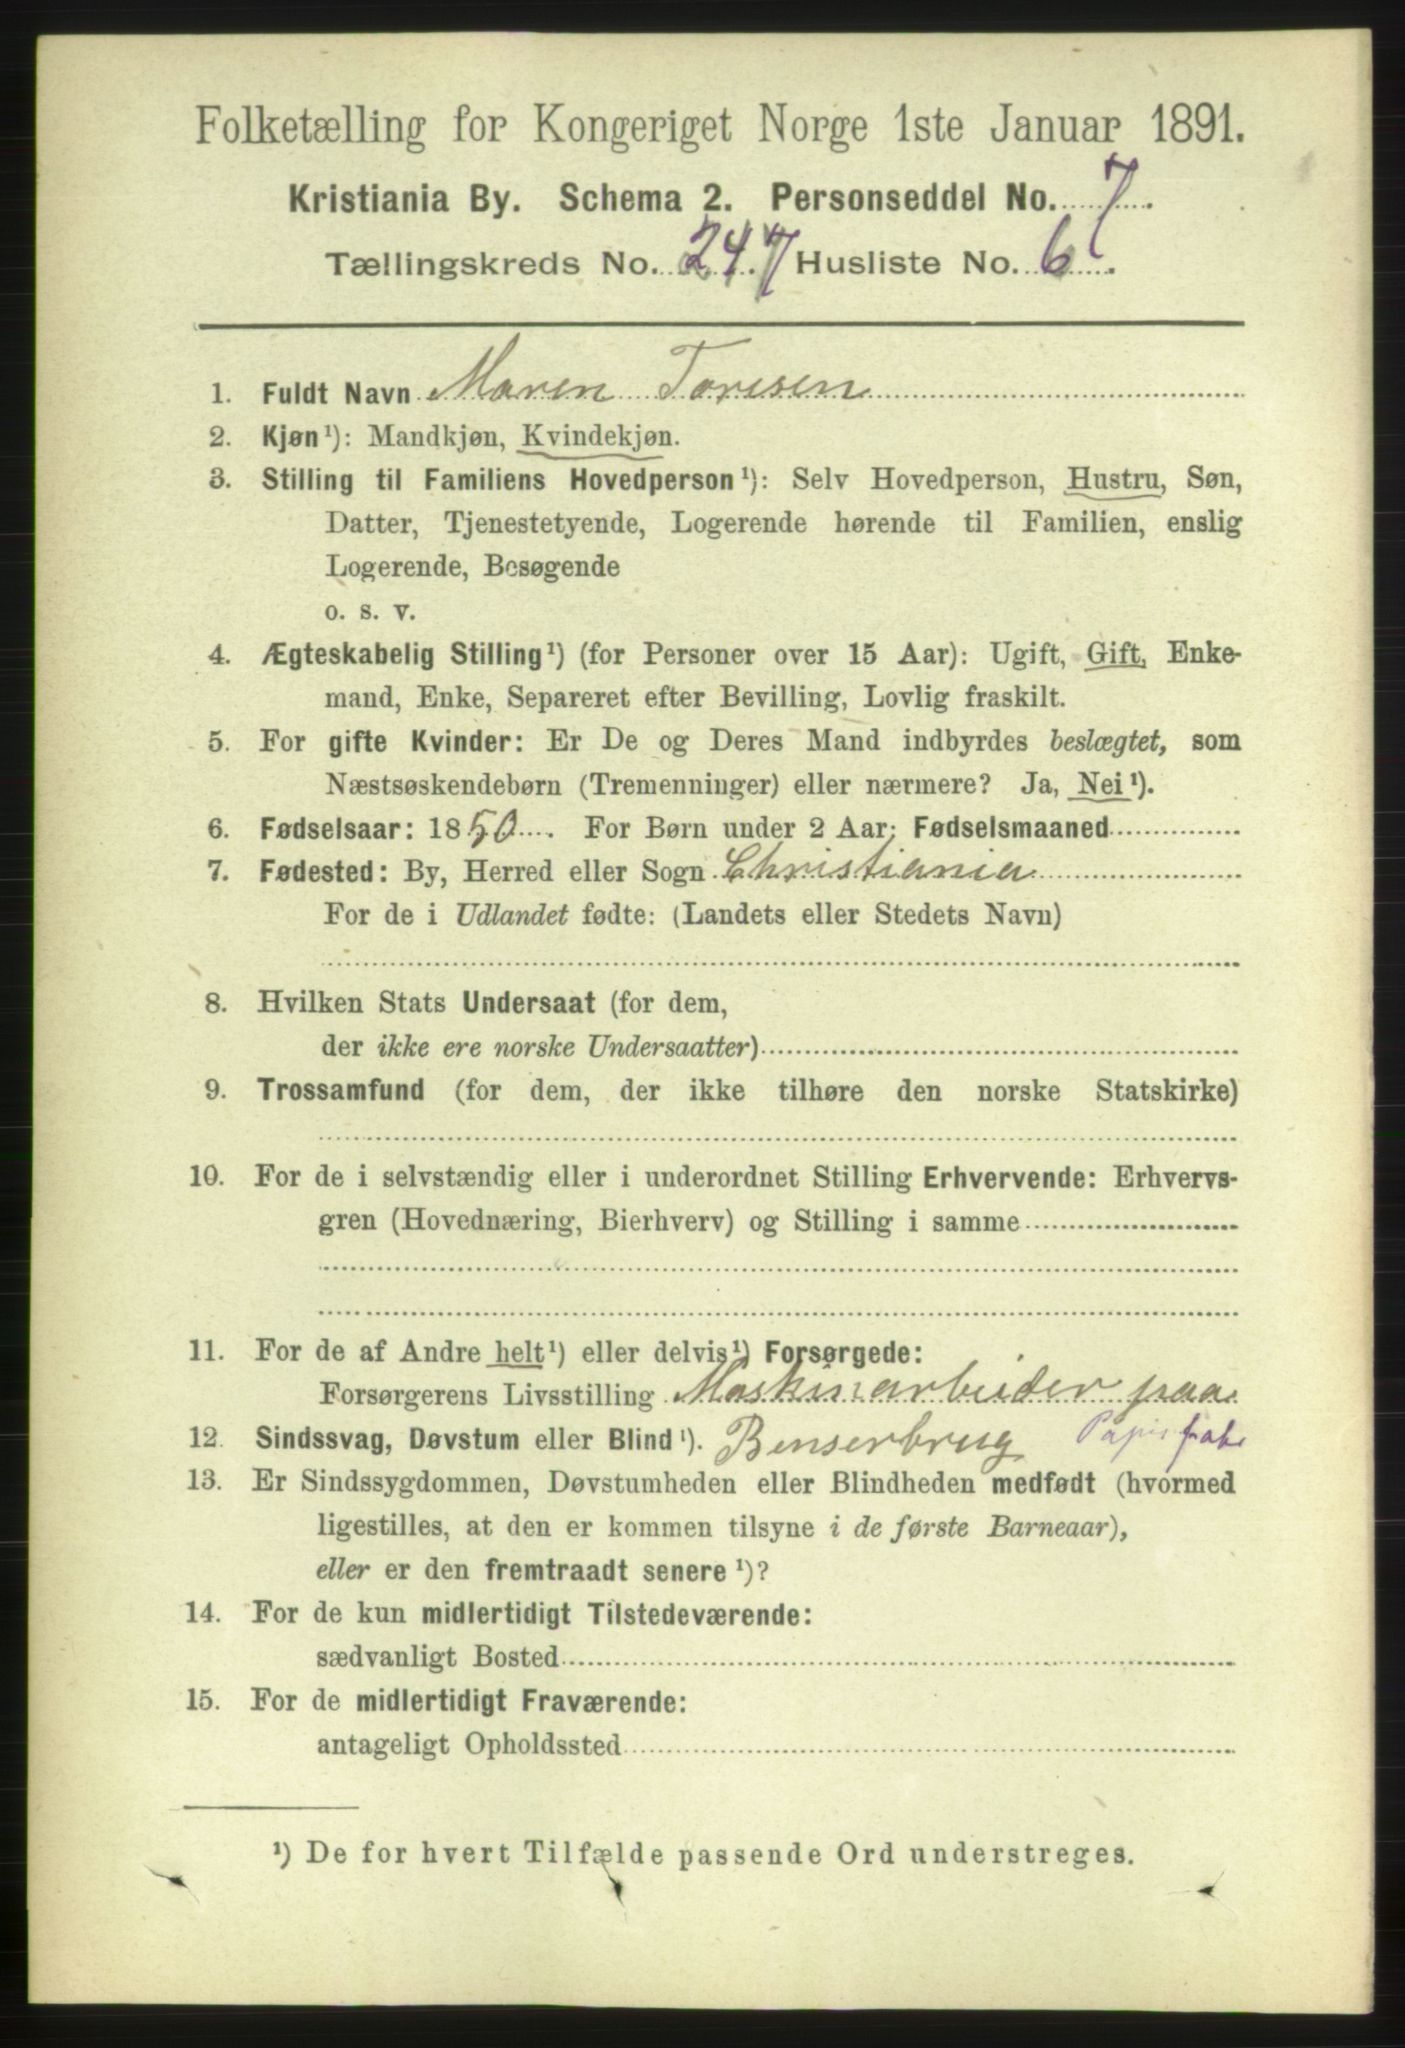 Folketælling for Kongeriget Norge 1ste Januar 1891.
Kristiania By. Schema 2. Personseddel No. 7.
Tællingskreds No. 247 Husliste No. 6.
1. Fuldt Navn Maren Toresen
2. Kjøn¹): Mandkjøn, Kvindekjøn.
3. Stilling til Familiens Hovedperson¹): Selv Hovedperson, Hustru, Søn,
Datter, Tjenestetyende, Logerende hørende til Familien, enslig
Logerende, Besøgende
o. s. v.
4. Ægteskabelig Stilling¹) (for Personer over 15 Aar): Ugift, Gift, Enke-
mand, Enke, Separeret efter Bevilling, Lovlig fraskilt.
5. For gifte Kvinder: Er De og Deres Mand indbyrdes beslægtet, som
Næstsøskendebørn (Tremenninger) eller nærmere? Ja, Nei¹).
6. Fødselsaar: 1850. For Børn under 2 Aar: Fødselsmaaned
7. Fødested: By, Herred eller Sogn Christiania
For de i Udlandet fødte: (Landets eller Stedets Navn)
8. Hvilken Stats Undersaat (for dem,
der ikke ere norske Undersaatter)
9. Trossamfund (for dem, der ikke tilhøre den norske Statskirke)
10. For de i selvstændig eller i underordnet Stilling Erhvervende: Erhvervs-
gren (Hovednæring, Bierhverv) og Stilling i samme
11. For de af Andre helt¹) eller delvis¹) Forsørgede:
Forsørgerens Livsstilling Maskinarbeider paa
12. Sindssvag, Døvstum eller Blind¹). Benserbrug Papirfabr
13. Er Sindssygdommen, Døvstumheden eller Blindheden medfødt (hvormed
ligestilles, at den er kommen tilsyne i de første Barneaar),
eller er den fremtraadt senere¹)?
14. For de kun midlertidigt Tilstedeværende:
sædvanligt Bosted
15. For de midlertidigt Fraværende:
antageligt Opholdssted
¹) De for hvert Tilfælde passende Ord understreges.